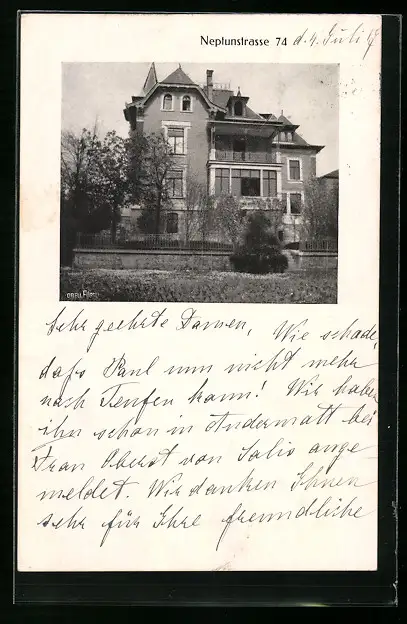 Neptunstrasse 74 d. 4. Juli
Sehr geehrte Damen, Wie schade,
dass Paul nun nicht mehr
nach Teufen kann! Wir haben
ihn schon in Andermatt bei
Frau Oberst von Salis ange
meldet. Wir danken Ihnen
sehr für Ihre freundliche